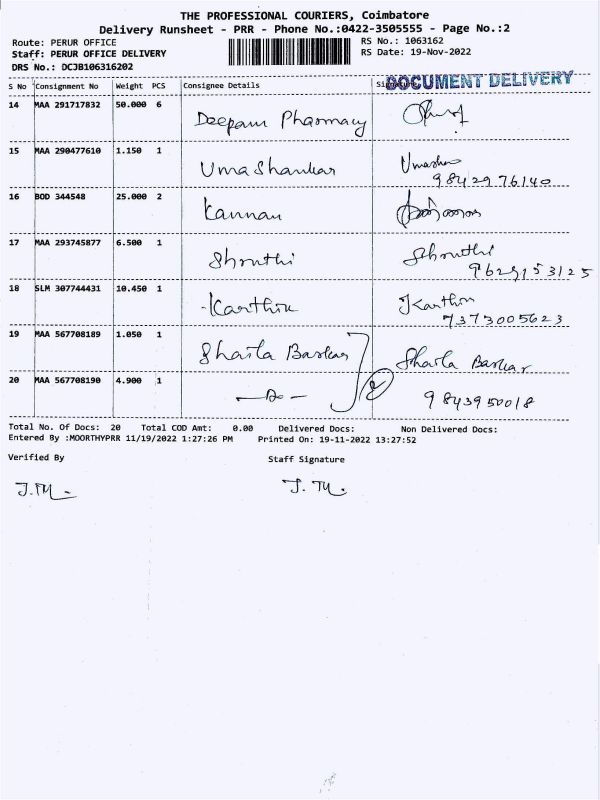 THE PROFESSIONAL COURIERS, Coimbatore
Delivery Runsheet - PRR - Phone No.:0422-3505555 - Page No.:2
Route: PERUR OFFICE RS No.: 1063162
Staff: PERUR OFFICE DELIVERY RS Date: 19-Nov-2022
DRS No.: DCJB106316202
DOCUMENT DELIVERY
S No Consignment No Weight PCS Consignee Details
14 MAA 291717832 50.000 6 Deepam Pharmacy
15 MAA 290477610 1.150 1 Uma Shankar
9842976140
16 BOD 344548 25.000 2 Kannan
17 MAA 293745877 6.500 1 Shruthi Shruthi
9629153125
18 SLM 307744431 10.450 1 Karthik Karthik
7373005623
19 MAA 567708189 1.050 1 Sharla Baskar Sharla Baskar
20 MAA 567708190 4.900 1 2 9843950018
Total No. Of Docs: 20 Total COD Amt: 0.00 Delivered Docs: Non Delivered Docs:
Entered By :MOORTHYPRR 11/19/2022 1:27:26 PM Printed On: 19-11-2022 13:27:52
Verified By Staff Signature